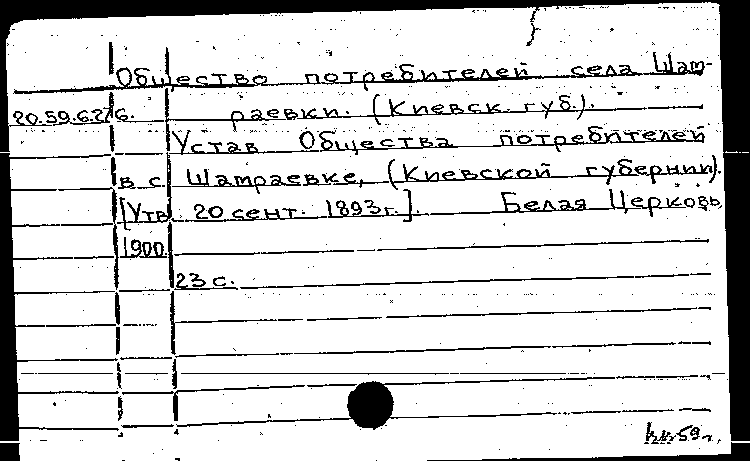 Общество потребителей села Шам-
20.59.6276. раевки. (Киевск. губ.).
Устав Общества потребителей
в с. Шамраевке, (Киевской губернии).
[Утв. 20 сент. 1893г.]. Белая Церковь,
1900.
23 с.
59 г.